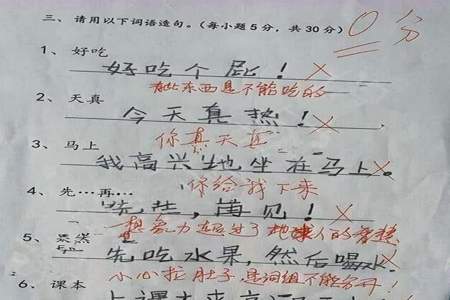 三、请用以下词语造句。(每小题5分,共30分) 0分
1、好吃
好吃个屁!×
此东西是不能吃的
2、天真
今天真热!×
你真天真
3、马上
我高兴地坐在马上。×
你给我下来
4、先…再…
先生,再见!×
想象力超过了地球人的智慧
5、果然
先吃水果,然后喝水。
小心拉肚子 是词组不能分开!
6、课本
上课本来